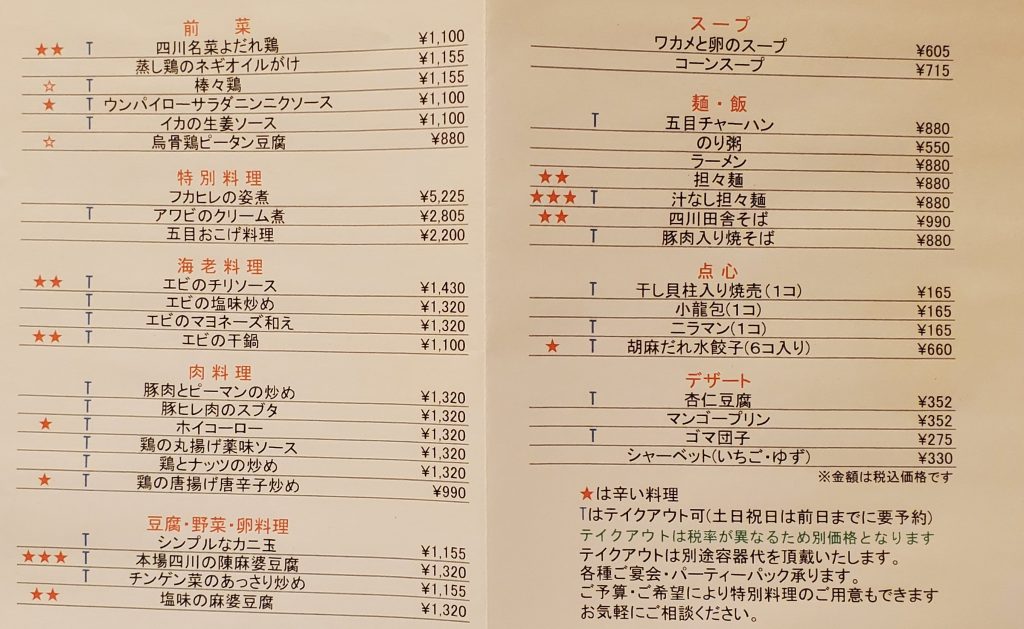 前 菜
★★ T 四川名菜よだれ鶏 ¥1,100
蒸し鶏のネギオイルがけ ¥1,155
☆ T 棒々鶏 ¥1,155
★ T ウンパイローサラダニンニクソース ¥1,100
T イカの生姜ソース ¥1,100
☆ 烏骨鶏ピータン豆腐 ¥880
特別料理
フカヒレの姿煮 ¥5,225
T アワビのクリーム煮 ¥2,805
五目おこげ料理 ¥2,200
海老料理
★★ T エビのチリソース ¥1,430
T エビの塩味炒め ¥1,320
T エビのマヨネーズ和え ¥1,320
★★ T エビの干鍋 ¥1,100
肉料理
T 豚肉とピーマンの炒め ¥1,320
T 豚ヒレ肉のスブタ ¥1,320
★ T ホイコーロー ¥1,320
T 鶏の丸揚げ薬味ソース ¥1,320
T 鶏とナッツの炒め ¥1,320
★ T 鶏の唐揚げ唐辛子炒め ¥990
豆腐・野菜・卵料理
T シンプルなカニ玉 ¥1,155
★★★ T 本場四川の陳麻婆豆腐 ¥1,320
T チンゲン菜のあっさり炒め ¥1,155
★★ 塩味の麻婆豆腐 ¥1,320
スープ
ワカメと卵のスープ ¥605
コーンスープ ¥715
麺・飯
T 五目チャーハン ¥880
のり粥 ¥550
ラーメン ¥880
★★ 担々麺 ¥880
★★★ T 汁なし担々麺 ¥880
★★ 四川田舎そば ¥990
T 豚肉入り焼そば ¥880
点心
T 干し貝柱入り焼売(1コ) ¥165
小龍包(1コ) ¥165
T ニラマン(1コ) ¥165
★ T 胡麻だれ水餃子(6コ入り) ¥660
デザート
T 杏仁豆腐 ¥352
マンゴープリン ¥352
T ゴマ団子 ¥275
シャーベット(いちご・ゆず) ¥330
※金額は税込価格です
★は辛い料理
Tはテイクアウト可(土日祝日は前日までに要予約)
テイクアウトは税率が異なるため別価格となります
テイクアウトは別途容器代を頂戴いたします。
各種ご宴会・パーティーパック承ります。
ご予算・ご希望により特別料理のご用意もできます
お気軽にご相談ください。